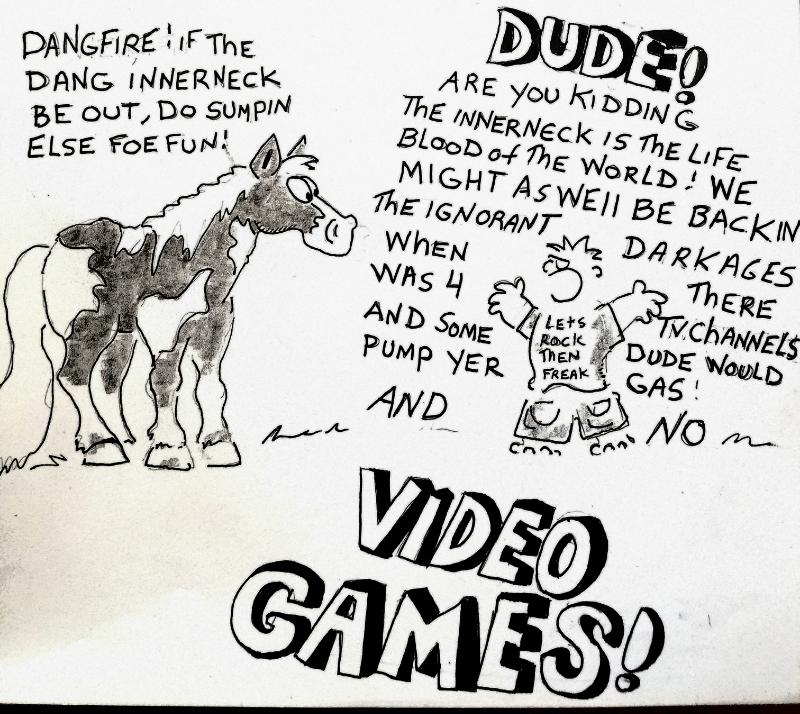 DANGFIRE! IF THE
DANG INNERNECK
BE OUT, DO SUMPIN
ELSE FOE FUN!
DUDE!
ARE YOU KIDDING
THE INNERNECK IS THE LIFE
BLOOD of THE WORLD! WE
MIGHT AS WEll BE BACK IN
THE IGNORANT DARK AGES
WHEN THERE
WAS 4 TV.CHANNELS
AND SOME DUDE WOULD
PUMP YER GAS!
AND NO
LETS
ROCK
THEN
FREAK
VIDEO
GAMES!